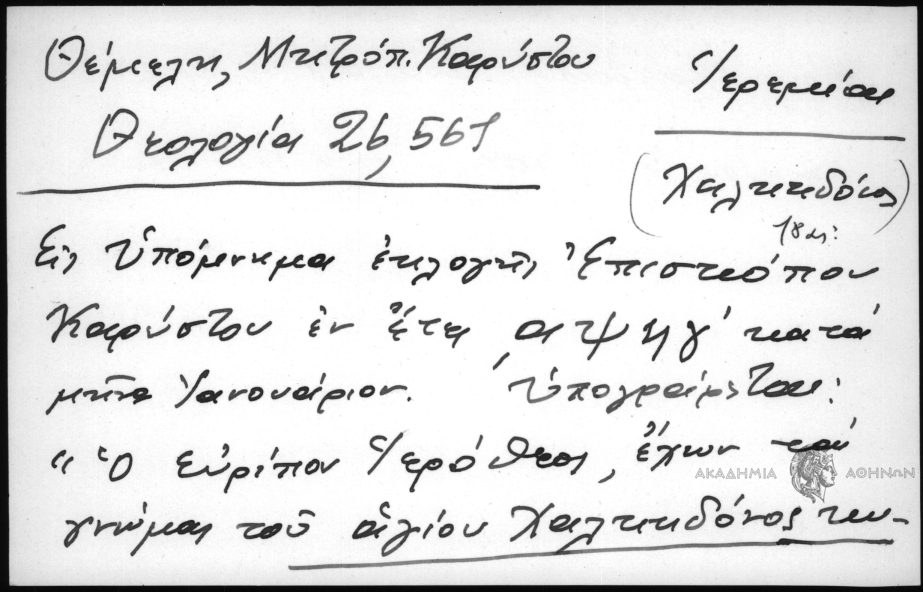 Θέμελη, Μητρόπ. Καρύστου
Θεολογία 26, 561
Ἱερεμίας
(Χαλκηδόνος)
18 αι:
Εἰς Ὑπόμνημα ἐκλογῆς Ἐπισκόπου
Καρύστου ἐν ἔτει ͵αψϞγ' κατά
μῆνα Ἰανουάριον. Ὑπογράφεται:
"Ὁ Εὐρίπου Ἱερόθεος, ἔχων καί
γνώμας τοῦ ἁγίου Χαλκηδόνος κυ-
ΑΚΑΔΗΜΙΑ ΑΘΗΝΩΝ